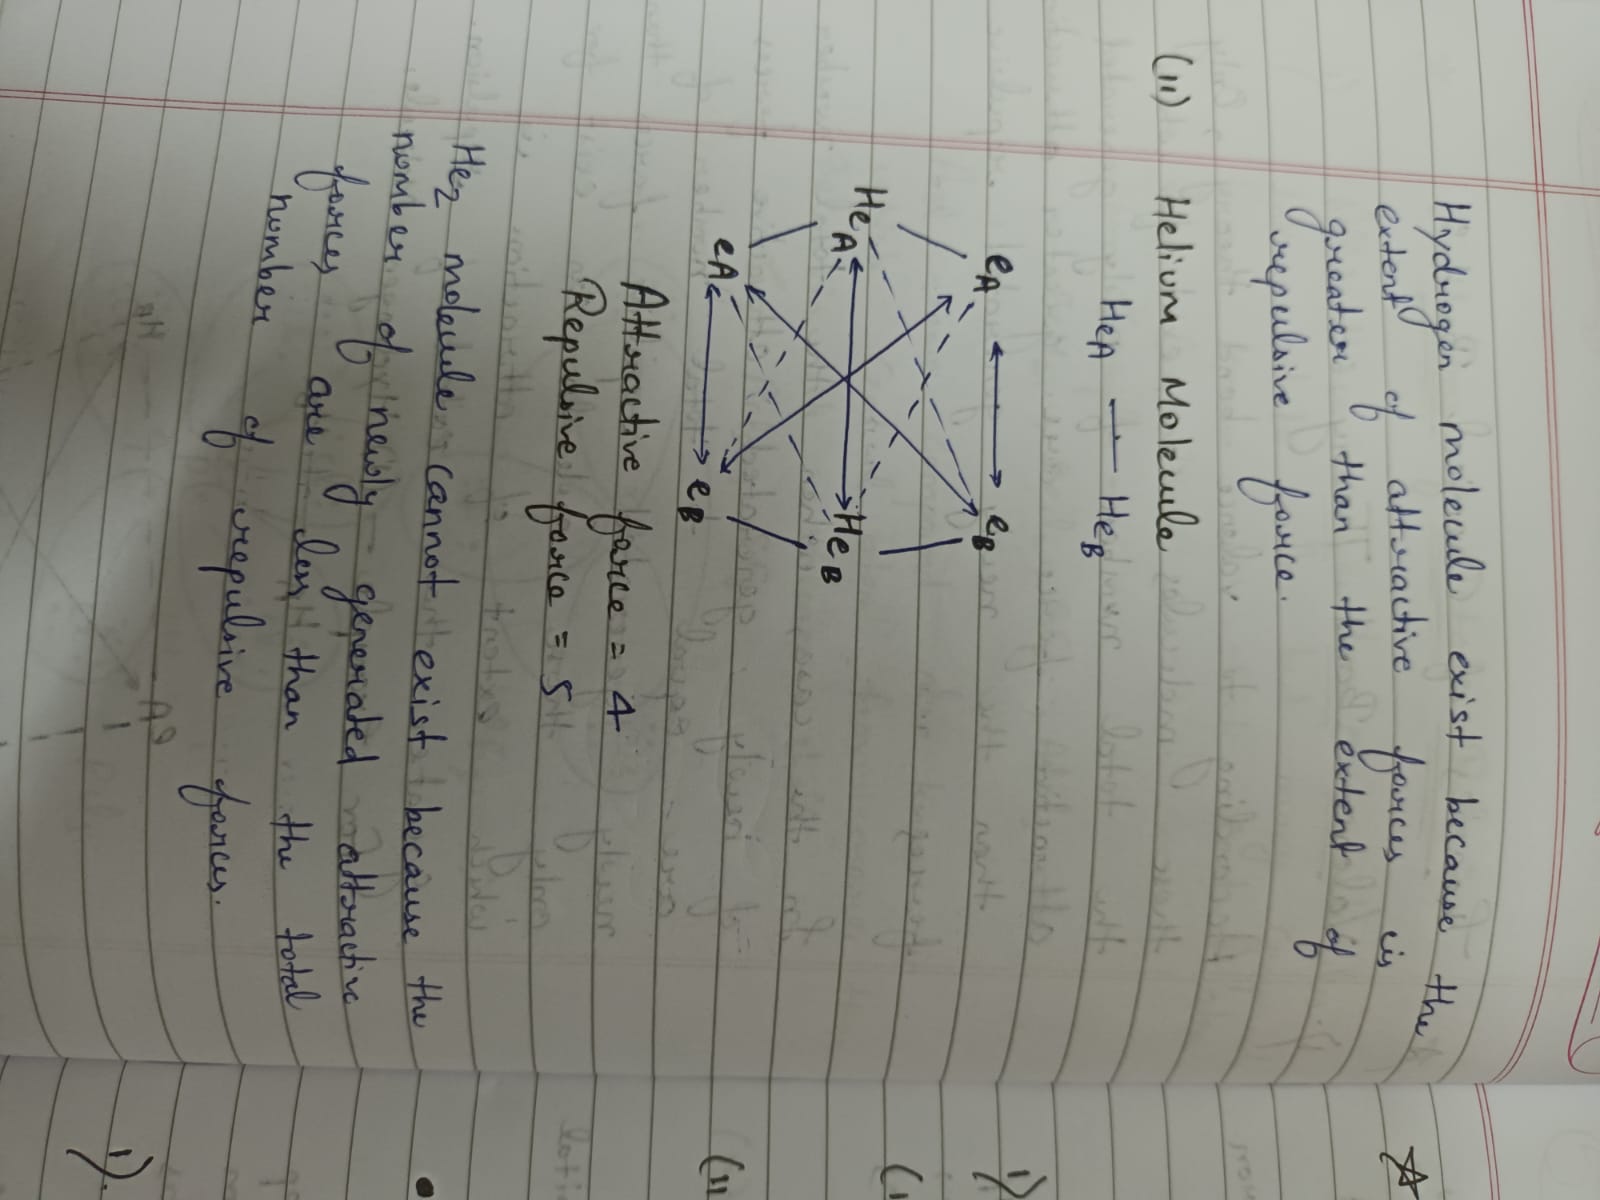 Hydrogen molecule exist because the
extent of attractive forces is
greater than the extent of
repulsive force.
(11) Helium Molecule
HeA — HeB
eA eB
HeA HeB
eA eB
Attractive force = 4
Repulsive force = 5
He2 molecule cannot exist because the
number of newly generated attractive
forces are less than the total
number of repulsive forces.
1)
(11
1).